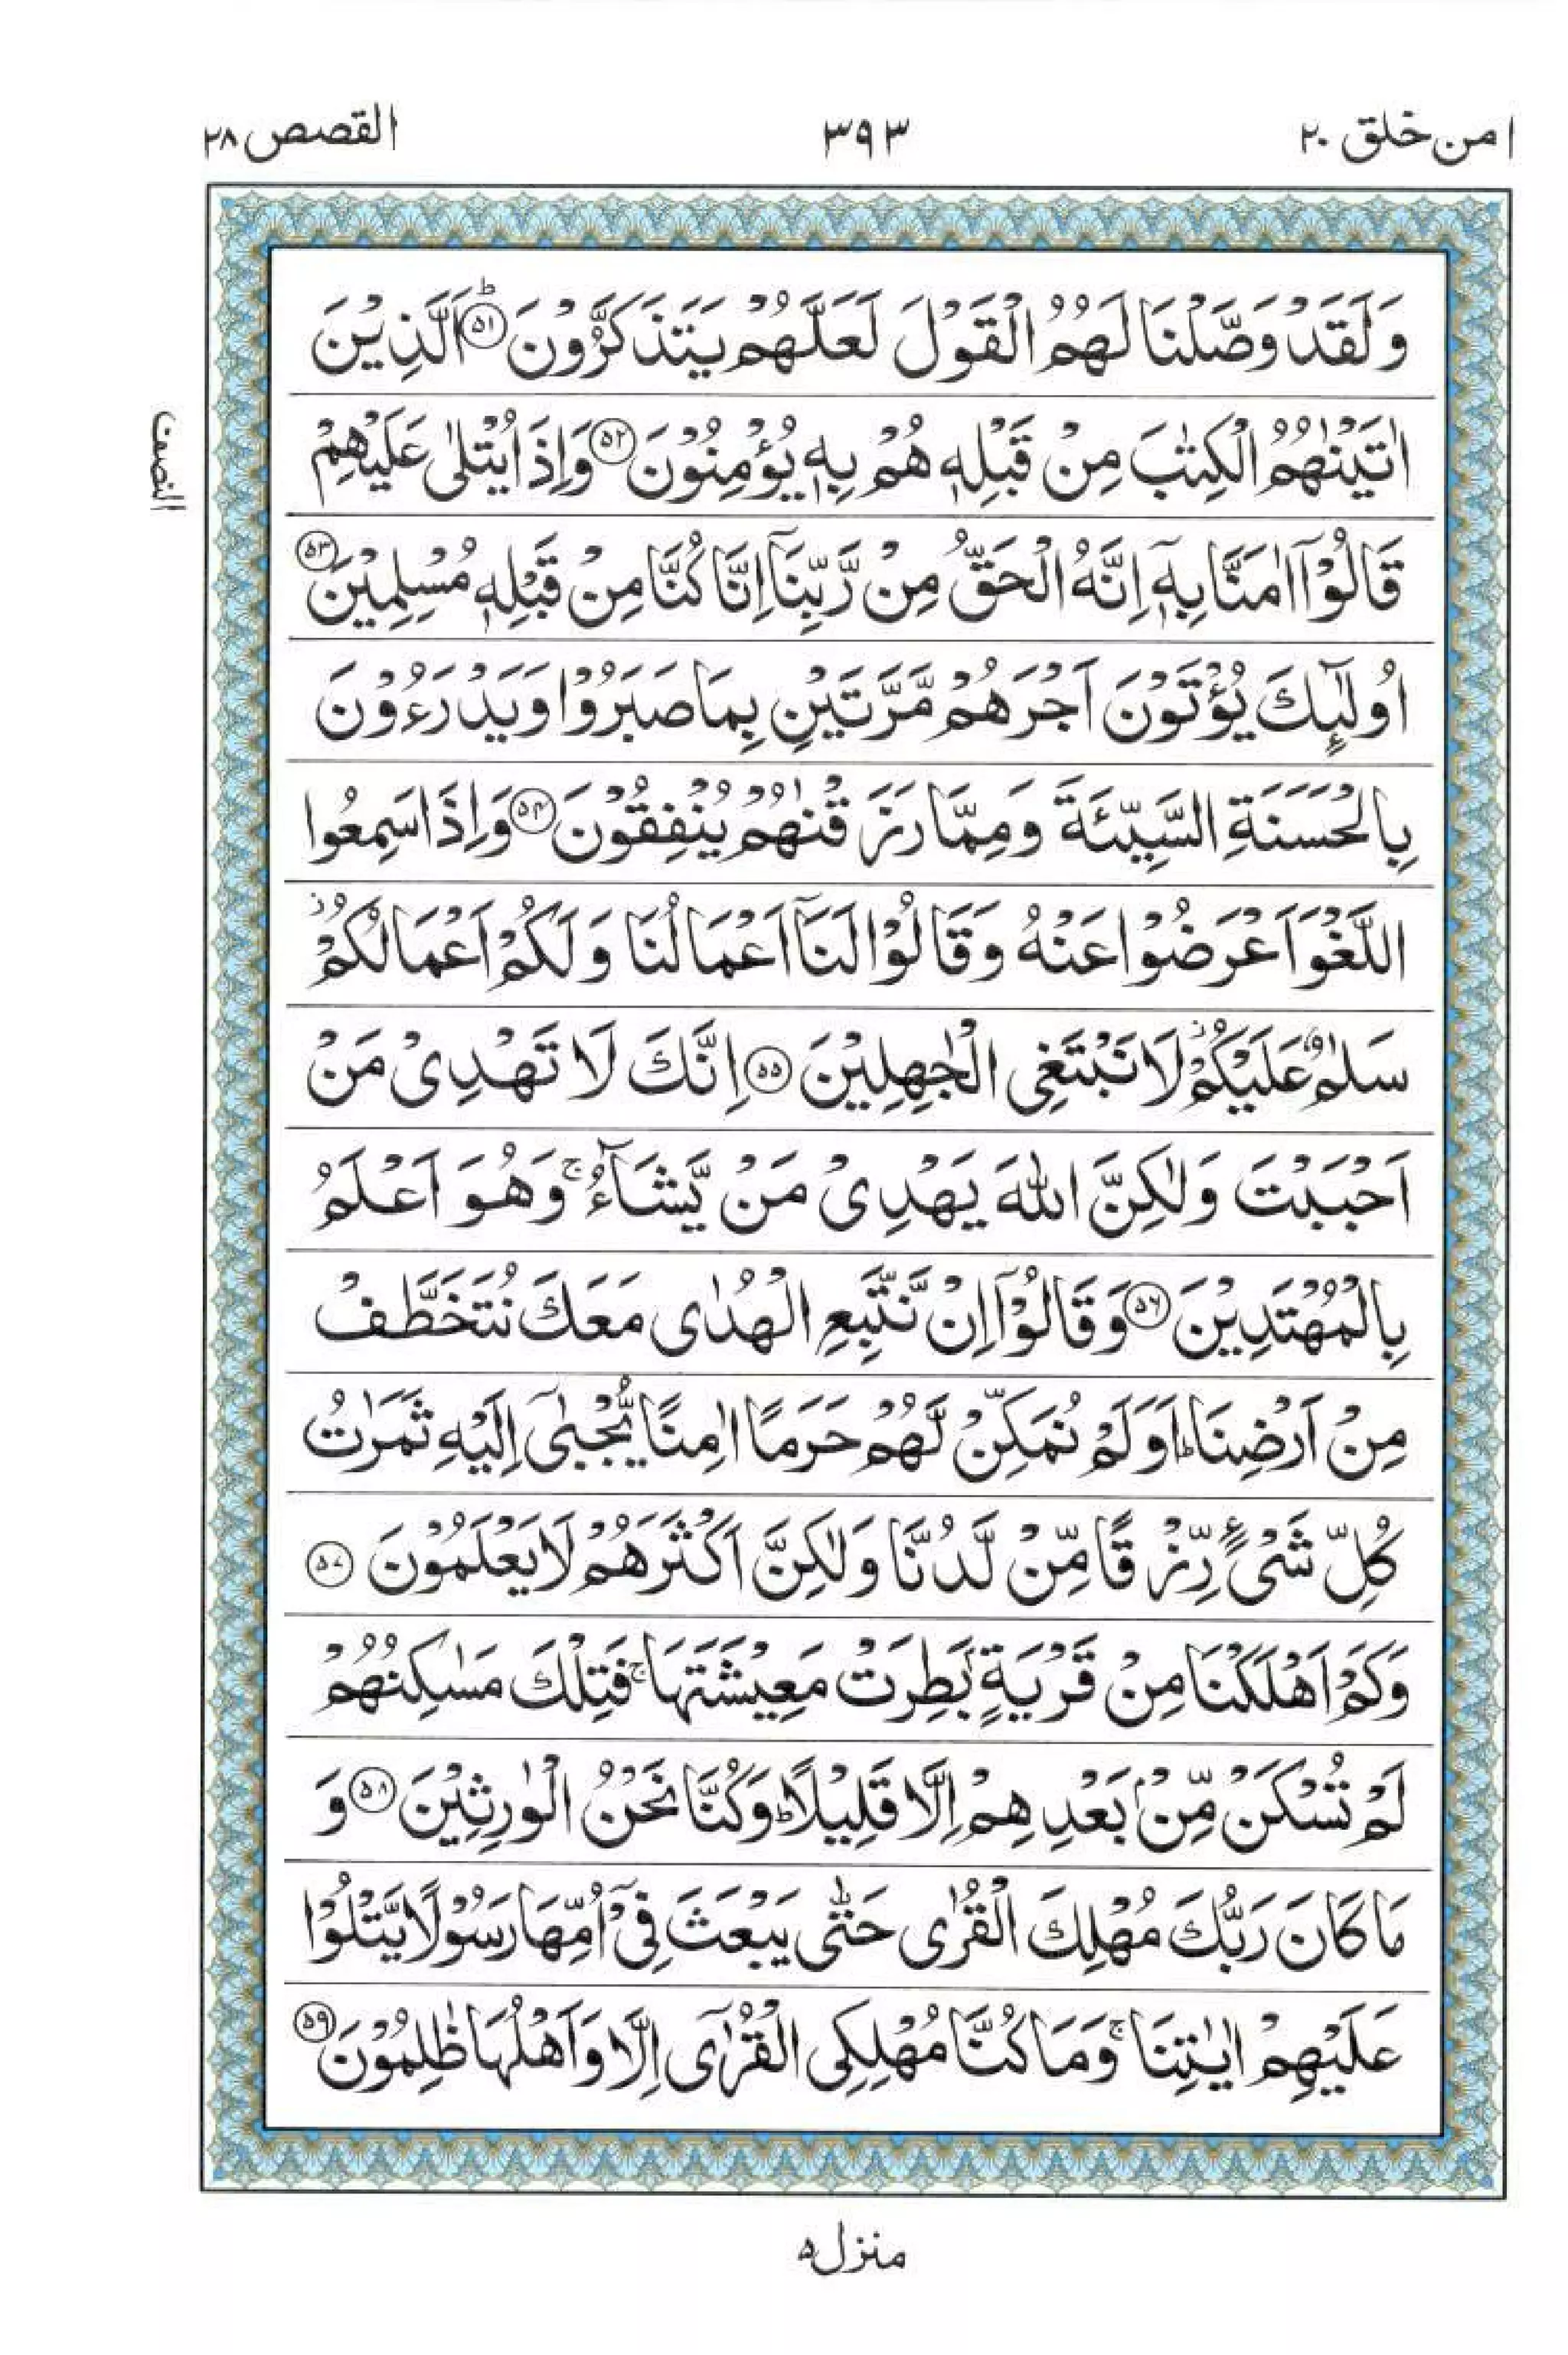 امن خلق ٢٠
٣٩٣
القصص ٢٨
وَلَقَدْ وَصَّلْنَا لَهُمُ الْقَوْلَ لَعَلَّهُمْ يَتَذَكَّرُوْنَ ؕ﴿۵۱﴾ اَلَّذِيْنَ
اٰتَيْنٰهُمُ الْكِتٰبَ مِنْ قَبْلِهٖ هُمْ بِهٖ يُؤْمِنُوْنَ ﴿۵۲﴾ وَاِذَا يُتْلٰى عَلَيْهِمْ
قَالُوْۤا اٰمَنَّا بِهٖۤ اِنَّهُ الْحَقُّ مِنْ رَّبِّنَاۤ اِنَّا كُنَّا مِنْ قَبْلِهٖ مُسْلِمِيْنَ ﴿۵۳﴾
اُولٰٓئِكَ يُؤْتَوْنَ اَجْرَهُمْ مَّرَّتَيْنِ بِمَا صَبَرُوْا وَيَدْرَءُوْنَ
بِالْحَسَنَةِ السَّيِّئَةَ وَمِمَّا رَزَقْنٰهُمْ يُنْفِقُوْنَ ﴿۵۴﴾ وَاِذَا سَمِعُوا
اللَّغْوَ اَعْرَضُوْا عَنْهُ وَقَالُوْا لَنَاۤ اَعْمَالُنَا وَلَكُمْ اَعْمَالُكُمْ ز
سَلٰمٌ عَلَيْكُمْ ز لَا نَبْتَغِى الْجٰهِلِيْنَ ﴿۵۵﴾ اِنَّكَ لَا تَهْدِىْ مَنْ
اَحْبَبْتَ وَلٰكِنَّ اللّٰهَ يَهْدِىْ مَنْ يَّشَآءُ ۚ وَهُوَ اَعْلَمُ
بِالْمُهْتَدِيْنَ ﴿۵۶﴾ وَقَالُوْۤا اِنْ نَّتَّبِعِ الْهُدٰى مَعَكَ نُتَخَطَّفْ
مِنْ اَرْضِنَا ؕ اَوَلَمْ نُمَكِّنْ لَّهُمْ حَرَمًا اٰمِنًا يُّجْبٰۤى اِلَيْهِ ثَمَرٰتُ
كُلِّ شَىْءٍ رِّزْقًا مِّنْ لَّدُنَّا وَلٰكِنَّ اَكْثَرَهُمْ لَا يَعْلَمُوْنَ ﴿۵۷﴾
وَكَمْ اَهْلَكْنَا مِنْ قَرْيَةٍۭ بَطِرَتْ مَعِيْشَتَهَا ۚ فَتِلْكَ مَسٰكِنُهُمْ
لَمْ تُسْكَنْ مِّنْۢ بَعْدِهِمْ اِلَّا قَلِيْلًا ؕ وَكُنَّا نَحْنُ الْوٰرِثِيْنَ ﴿۵۸﴾ وَ
مَا كَانَ رَبُّكَ مُهْلِكَ الْقُرٰى حَتّٰى يَبْعَثَ فِىْۤ اُمِّهَا رَسُوْلًا يَّتْلُوْا
عَلَيْهِمْ اٰيٰتِنَا ۚ وَمَا كُنَّا مُهْلِكِى الْقُرٰٓى اِلَّا وَاَهْلُهَا ظٰلِمُوْنَ ﴿۵۹﴾
النصف
منزل ۵